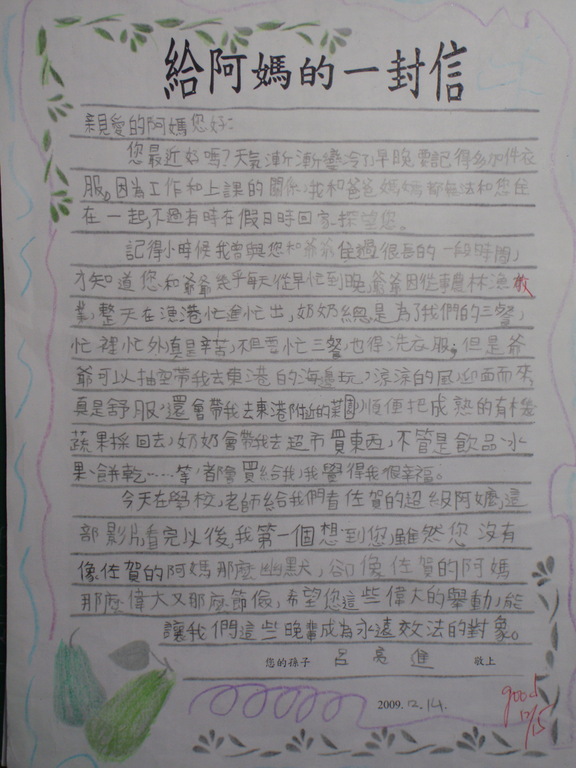 給阿媽的一封信
親愛的阿媽您好:
您最近好嗎?天氣漸漸變冷了早晚要記得多加件衣
服,因為工作和上課的關係,我和爸爸媽媽都無法和您住
在一起,不過有時在假日時回家探望您。
記得小時候我曾與您和爺爺住過很長的一段時間,
才知道您和爺爺幾乎每天從早忙到晚,爺爺因從事農林漁牧
業,整天在漁港忙進忙出,奶奶總是為了我們的三餐,
忙裡忙外真是辛苦,不但要忙三餐,也得洗衣服;但是爺
爺可以抽空帶我去東港的海邊玩,涼涼的風迎面而來
真是舒服,還會帶我去東港附近的菜園順便把成熟的有機
蔬果採回去,奶奶會帶我去超市買東西,不管是飲品、水
果、餅乾……等,都會買給我,我覺得我很幸福。
今天在學校,老師給我們看佐賀的超級阿嬤,這
部影片,看完以後,我第一個想到您,雖然您沒有
像佐賀的阿媽那麼幽默,卻像佐賀的阿媽
那麼偉大又那麼節儉,希望您這些偉大的舉動,能
讓我們這些晚輩成為永遠效法的對象。
您的孫子 呂亮進 敬上
2009.12.14.
good
12/15